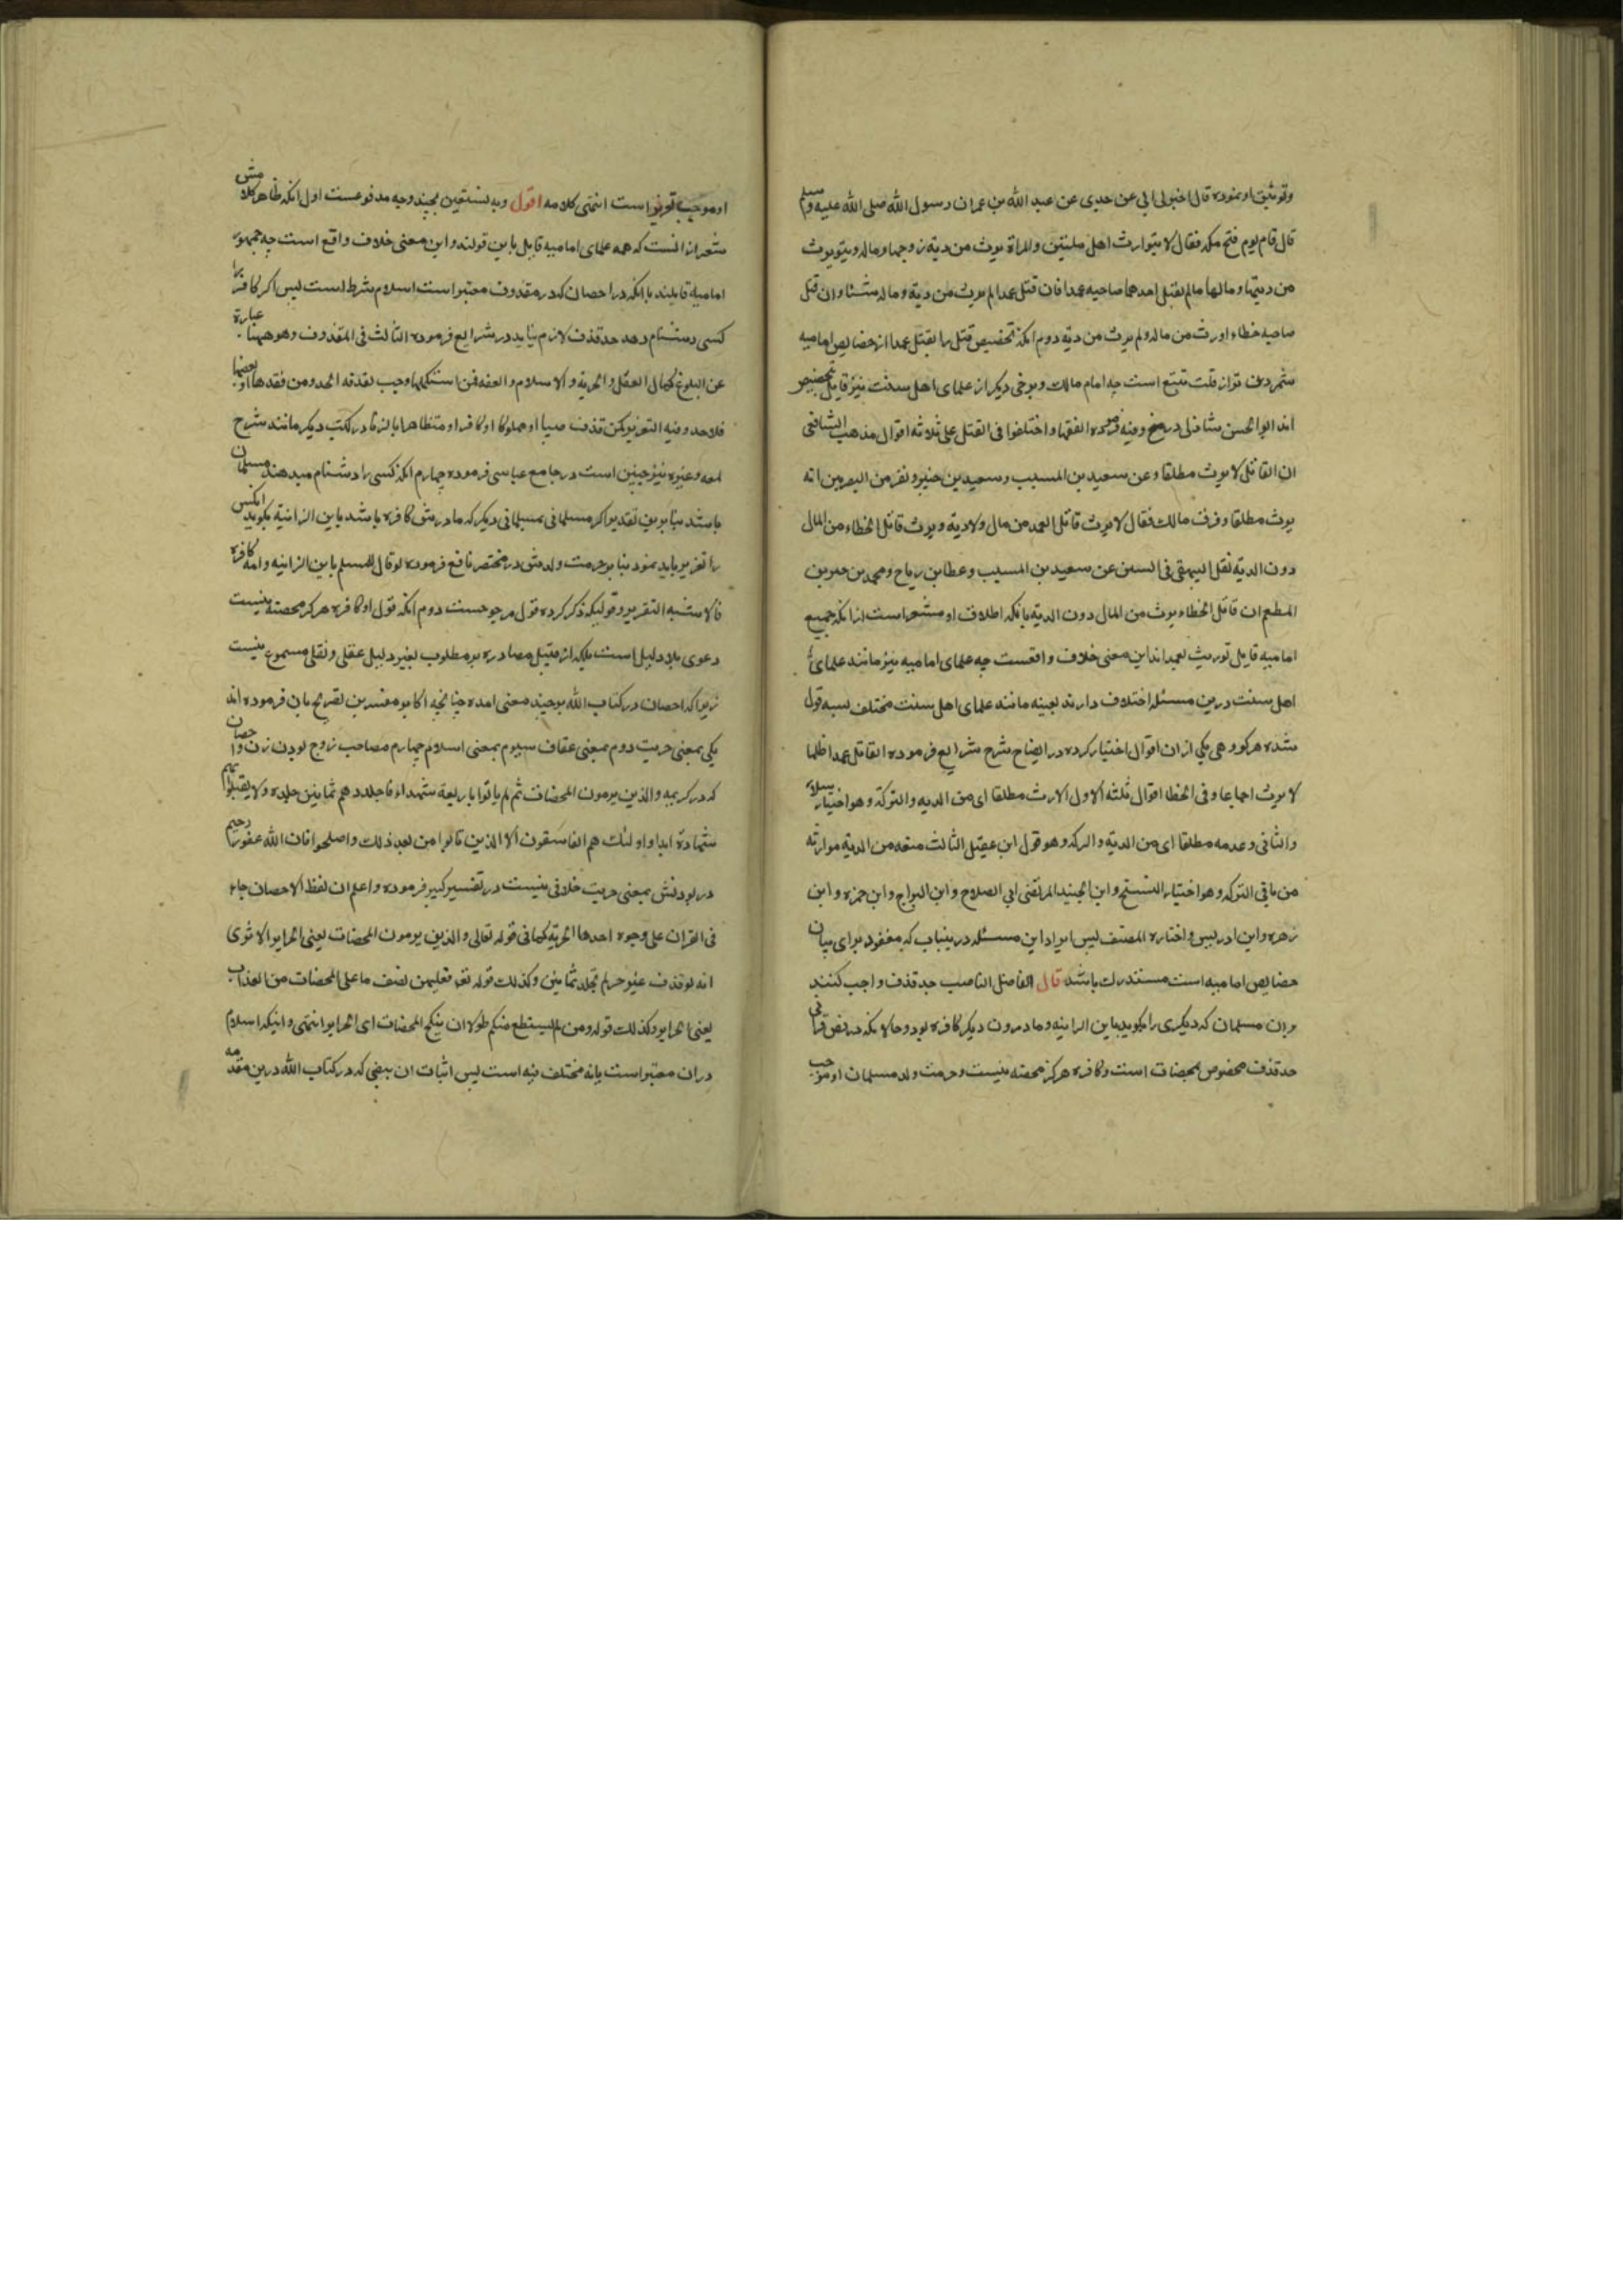 وتوثیق او نموده قال اخبرنی ابی عن جدی عن عبد الله بن عمران رسول الله صلی الله علیه وسلم
قال قام یوم فتح مکه فقال لا یتوارث اهل ملتین والمراة یرث من دیة زوجها وماله ویتویرث
من دیتها ومالها مالم یقتل احدهما صاحبه عمدا فان قتل عمدا لم یرث من دیة وماله شئا وان قتل
صاحبه خطاء اورث من ماله ولم یرث من دیة دوم انکه تخصیص قتل را بقتل عمدا از خصایص امامیه
شمردن تو از قلت تتبع است چه امام مالک وبرخی دیکر از علمای اهل سنت نیز قایل بتخصیص
اند ابو الحسن شاذلی در وفیه فرموده الفقها واختلفوا فی القتل علی ثلاثه اقوال مذهب الشافعی
ان القاتل لا یرث مطلقا وعن سعید بن المسیب وسعید بن جبیر ونفر من البصرین انه
یرث مطلقا وفرق مالک فقال لا یرث قاتل العمد من مال ولا دیة ویرث قاتل الخطاء من المال
دون الدیة نقل البیهقی فی السنن عن سعید بن المسیب وعطا بن رباح ومحمد بن جبیر بن
المطعم ان قاتل الخطاء یرث من المال دون الدیة بانکه اطلاق او مشعر است از انکه جمیع
امامیه قایل توریث بعمد اند این معنی خلاف واقعست چه علمای امامیه نیز مانند علمای
اهل سنت درین مسئله اختلاف دارند بعینه مانند علمای اهل سنت مختلف بسه قول
شده هرکروهی یکی از ان اقوال اختیار کرده در ایضاح شرح شرایع فرموده القاتل عمدا ظلما
لا یرث اجماعا وفی الخطا اقوال ثلثه الاول الارث مطلقا ای من الدیه والترکة وهو اختیار سلار
والثانی وعدمه مطلقا ای من الدیة والترکه وهو قول ابن عقیل الثالث منعه من الدیة موارثه
من باقی الترکه وهو اختیار الشیخ وابن الجنید المرتضی ابی الصلاح وابن البراج وابن حمزه وابن
زهره وابن ادریس واختاره المصنف لیس ایراد این مسئله درینباب که معقود برای بیان
خصایص امامیه است مستدرک باشد قال الفاضل الناصب حد قذف واجب کنند
بران مسلمان که دیکری را بکوید یا بن الزانیه ومادر ون دیکر کافره بود وحال انکه در نص قرآنی
حد قذف مخصوص بمحصنات است وکافره هرکز محصنه نیست وحرمت ولد مسلمان او موجب
او موجب تعزیر است انتهی کلامه اقول وبه نستعین بچند وجه مدفوعست اول انکه ظاهر کلامش
مشعر از انست که همه علمای امامیه قایل باین قولند واین معنی خلاف واقع است چه جمهور
امامیه قایلند با انکه در احصان که در مقذوف معتبر است اسلام شرط است لیس اکر کافر را
کسی دشنام دهد حد قذف لازم نیاید در شرایع فرموده الثالث فی المقذوف وهو ههنا عبارة
عن البلوغ کمال العقل والحریه والاسلام والعفه فمن استکملها وجب بقذفه الحد ومن فقدها او بعضها
فلا حد وفیه التعزیر کمن قذف صبیا او مملوکا او کافرا او متظاهرا بالزنا در کتب دیکر مانند شرح
لمعه وغیره نیز چنین است در جامع عباسی فرموده چهارم انکه کسی را دشنام میدهند مسلمان
باشد بنا برین تقدیر اکر مسلمانی بمسلمانی دیکر که مادرش کافره باشد یا بن الزانیة بکوید انکس
را تعزیر باید نمود بنا بر حرمت ولدش در مختصر نافع فرموده لو قال للمسلم یا بن الزانیه وامه کافره
فالاشبه التعزیر وقولیکه ذکر کرده قول مرجوحست دوم انکه قول او کافره هرکز محصنه نیست
دعوی بلا دلیل است بلکه از قبیل مصادره بر مطلوب بغیر دلیل عقلی ونقلی مسموع نیست
زیرا که احصان در کتاب الله بوجند معنی امده چنانچه اکابر مفسرین تصریح بان فرموده اند
یکی بمعنی حریت دوم بمعنی عفاف سیوم بمعنی اسلام چهارم مصاحب زوج بودن زن واحصان
که در کریمه والذین یرمون المحصنات ثم لم یاتوا باربعة شهداء فاجلدوهم ثمانین جلده ولا تقبلوا لهم
شهادة ابدا واولئک هم الفاسقون الا الذین تابوا من بعد ذلک واصلحوا فان الله غفور رحیم
در بودنش بمعنی حریت خلافی نیست در تفسیر کبیر فرموده واعلم ان لفظ الاحصان جاء
فی القران علی وجوه احدها الحریة کما فی قوله تعالی والذین یرمون المحصنات یعنی الحرایر الا تری
انه لو قذف غیر حر لم یجلد ثمانین وکذلک قوله تع فعلیهن نصف ما علی المحصنات من العذاب
یعنی الحرایر وکذلک قوله ومن لم یستطع منکم طولا ان ینکح المحصنات ای الحرایر انتهی واینکه اسلام
دران معتبر است یا نه مختلف فیه است لیس اثبات ان بنصی که در کتاب الله درین مقدمه